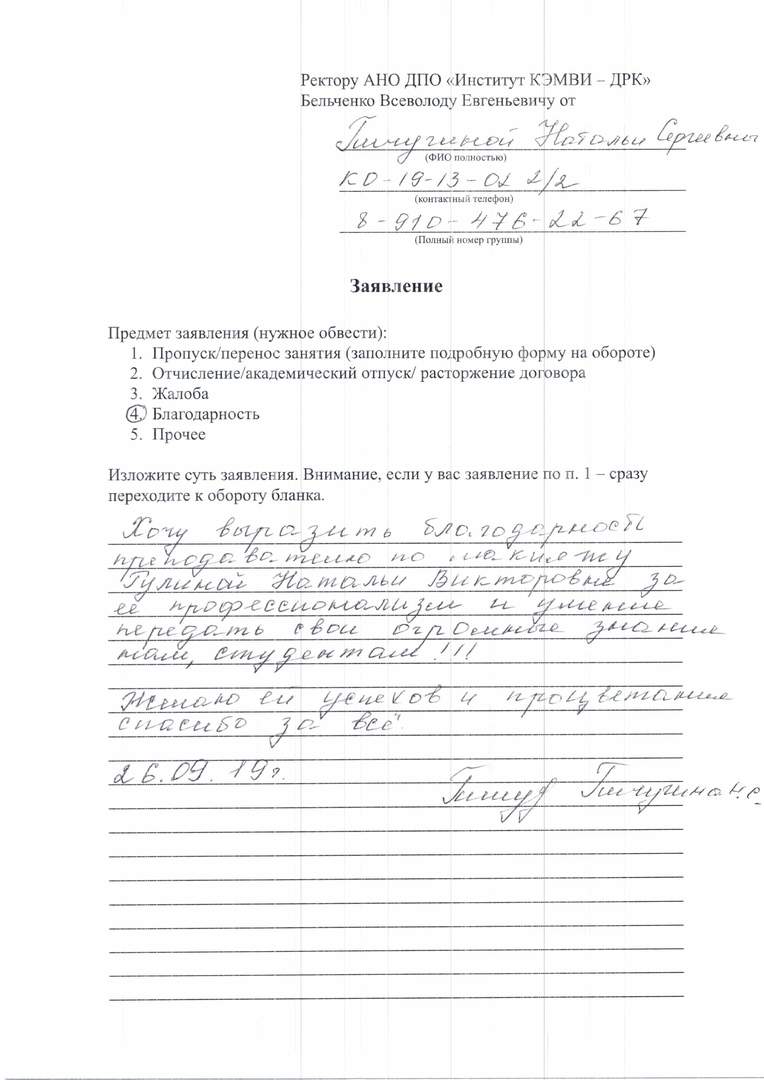 Ректору АНО ДПО «Институт КЭМВИ – ДРК»
Бельченко Всеволоду Евгеньевичу от
Пичугиной Натальи Сергеевны
(ФИО полностью)
КО-19-13-02 2/2
(контактный телефон)
8-910-476-22-67
(Полный номер группы)
Заявление
Предмет заявления (нужное обвести):
1. Пропуск/перенос занятия (заполните подробную форму на обороте)
2. Отчисление/академический отпуск/ расторжение договора
3. Жалоба
4. Благодарность
5. Прочее
Изложите суть заявления. Внимание, если у вас заявление по п. 1 – сразу
переходите к обороту бланка.
Хочу выразить благодарность
преподавателю по макияжу
Гулиной Натальи Викторовне за
её профессионализм и умение
передать свои огромные знания
нам, студентам!!!
Желаю ей успехов и процветания
спасибо за всё
26.09.19г.
Пичугина Н.С.